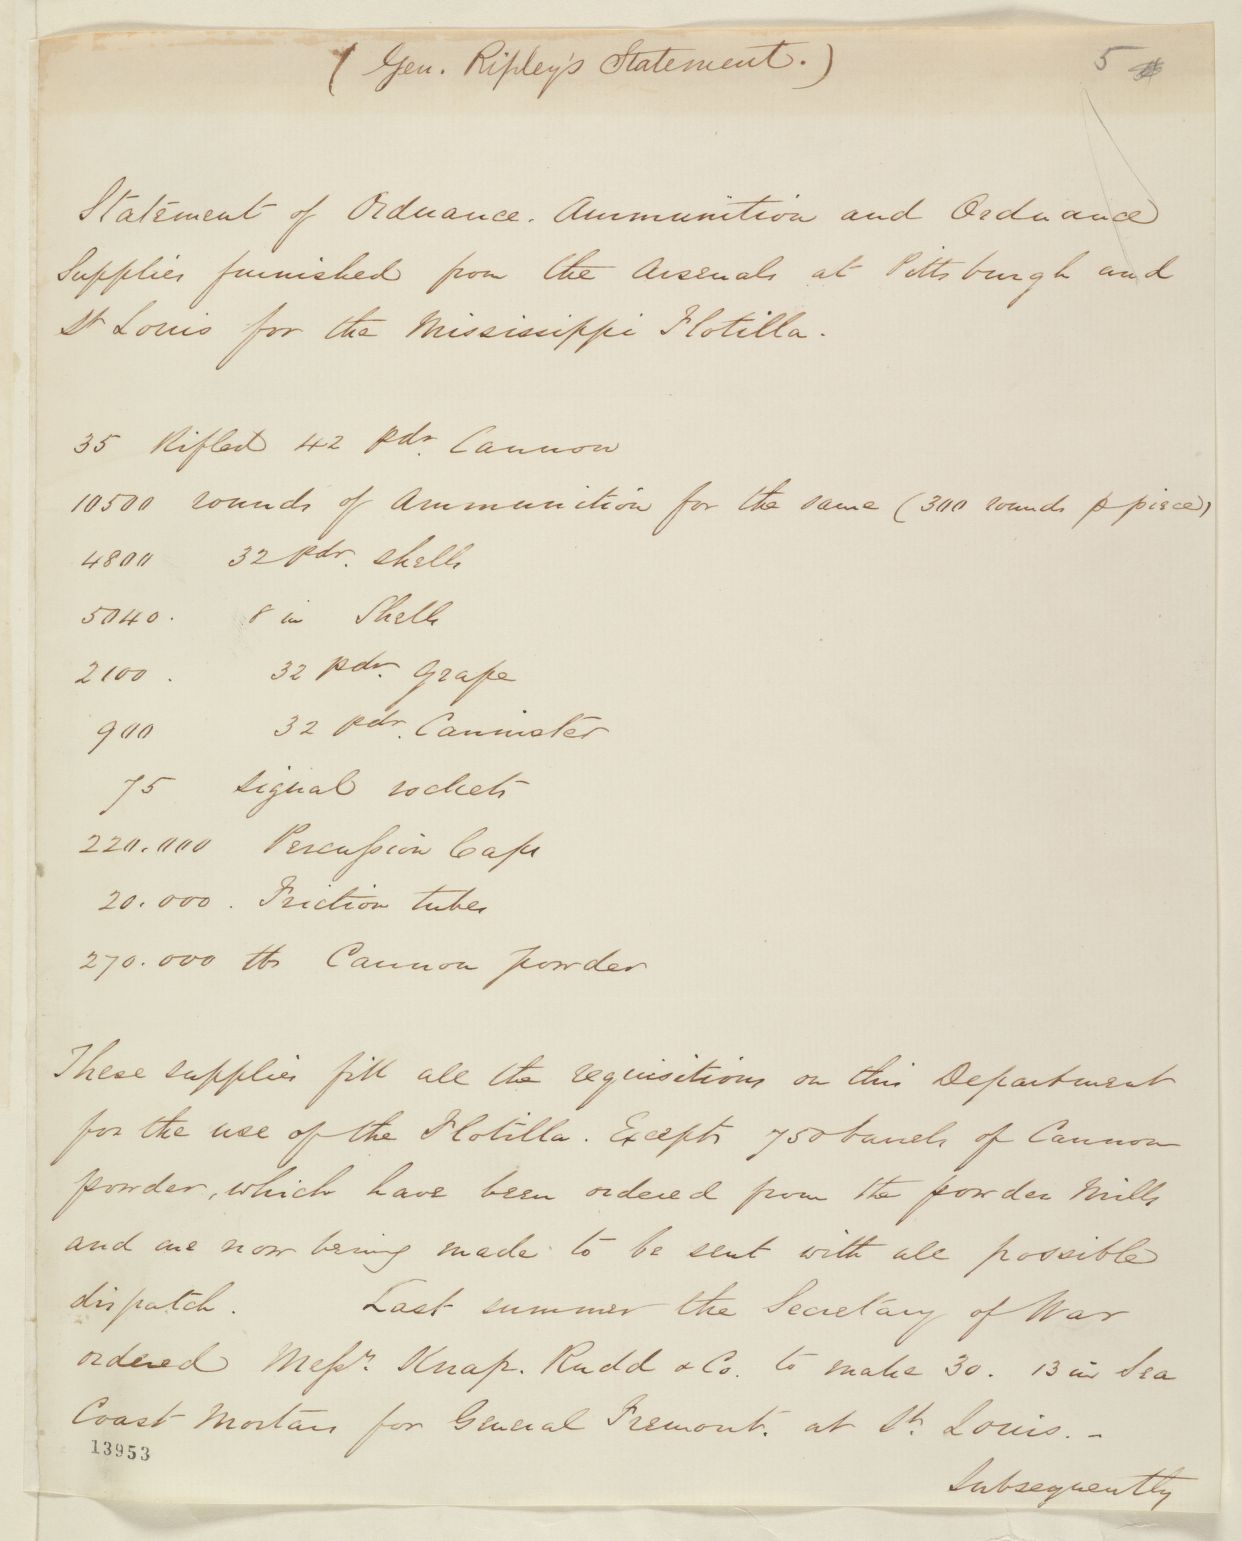 ( Gen. Ripley's Statement. )
5
Statement of Ordnance. Ammunition and Ordnance
Supplies furnished from the Arsenals at Pittsburgh and
St Louis for the Mississippi Flotilla.
35 Rifled 42 pdr. Cannon
10500 rounds of Ammunition for the same (300 rounds p piece)
4800 32 pdr. shells
5040. 8 in Shells
2100. 32 pdr. Grape
900 32 pdr. Cannister
75 signal rockets
220.000 Percussion Caps
20.000. Friction tubes
270.000 lbs Cannon powder
These supplies fill all the requisitions on this Department
for the use of the Flotilla. Except 750 barrels of Cannon
powder, which have been ordered from the powder Mills
and are now being made to be sent with all possible
dispatch. Last summer the Secretary of War
ordered Messrs. Knap. Rudd & Co. to make 30. 13 in Sea
Coast Mortars for General Fremont. at St. Louis. -
13953
Subsequently